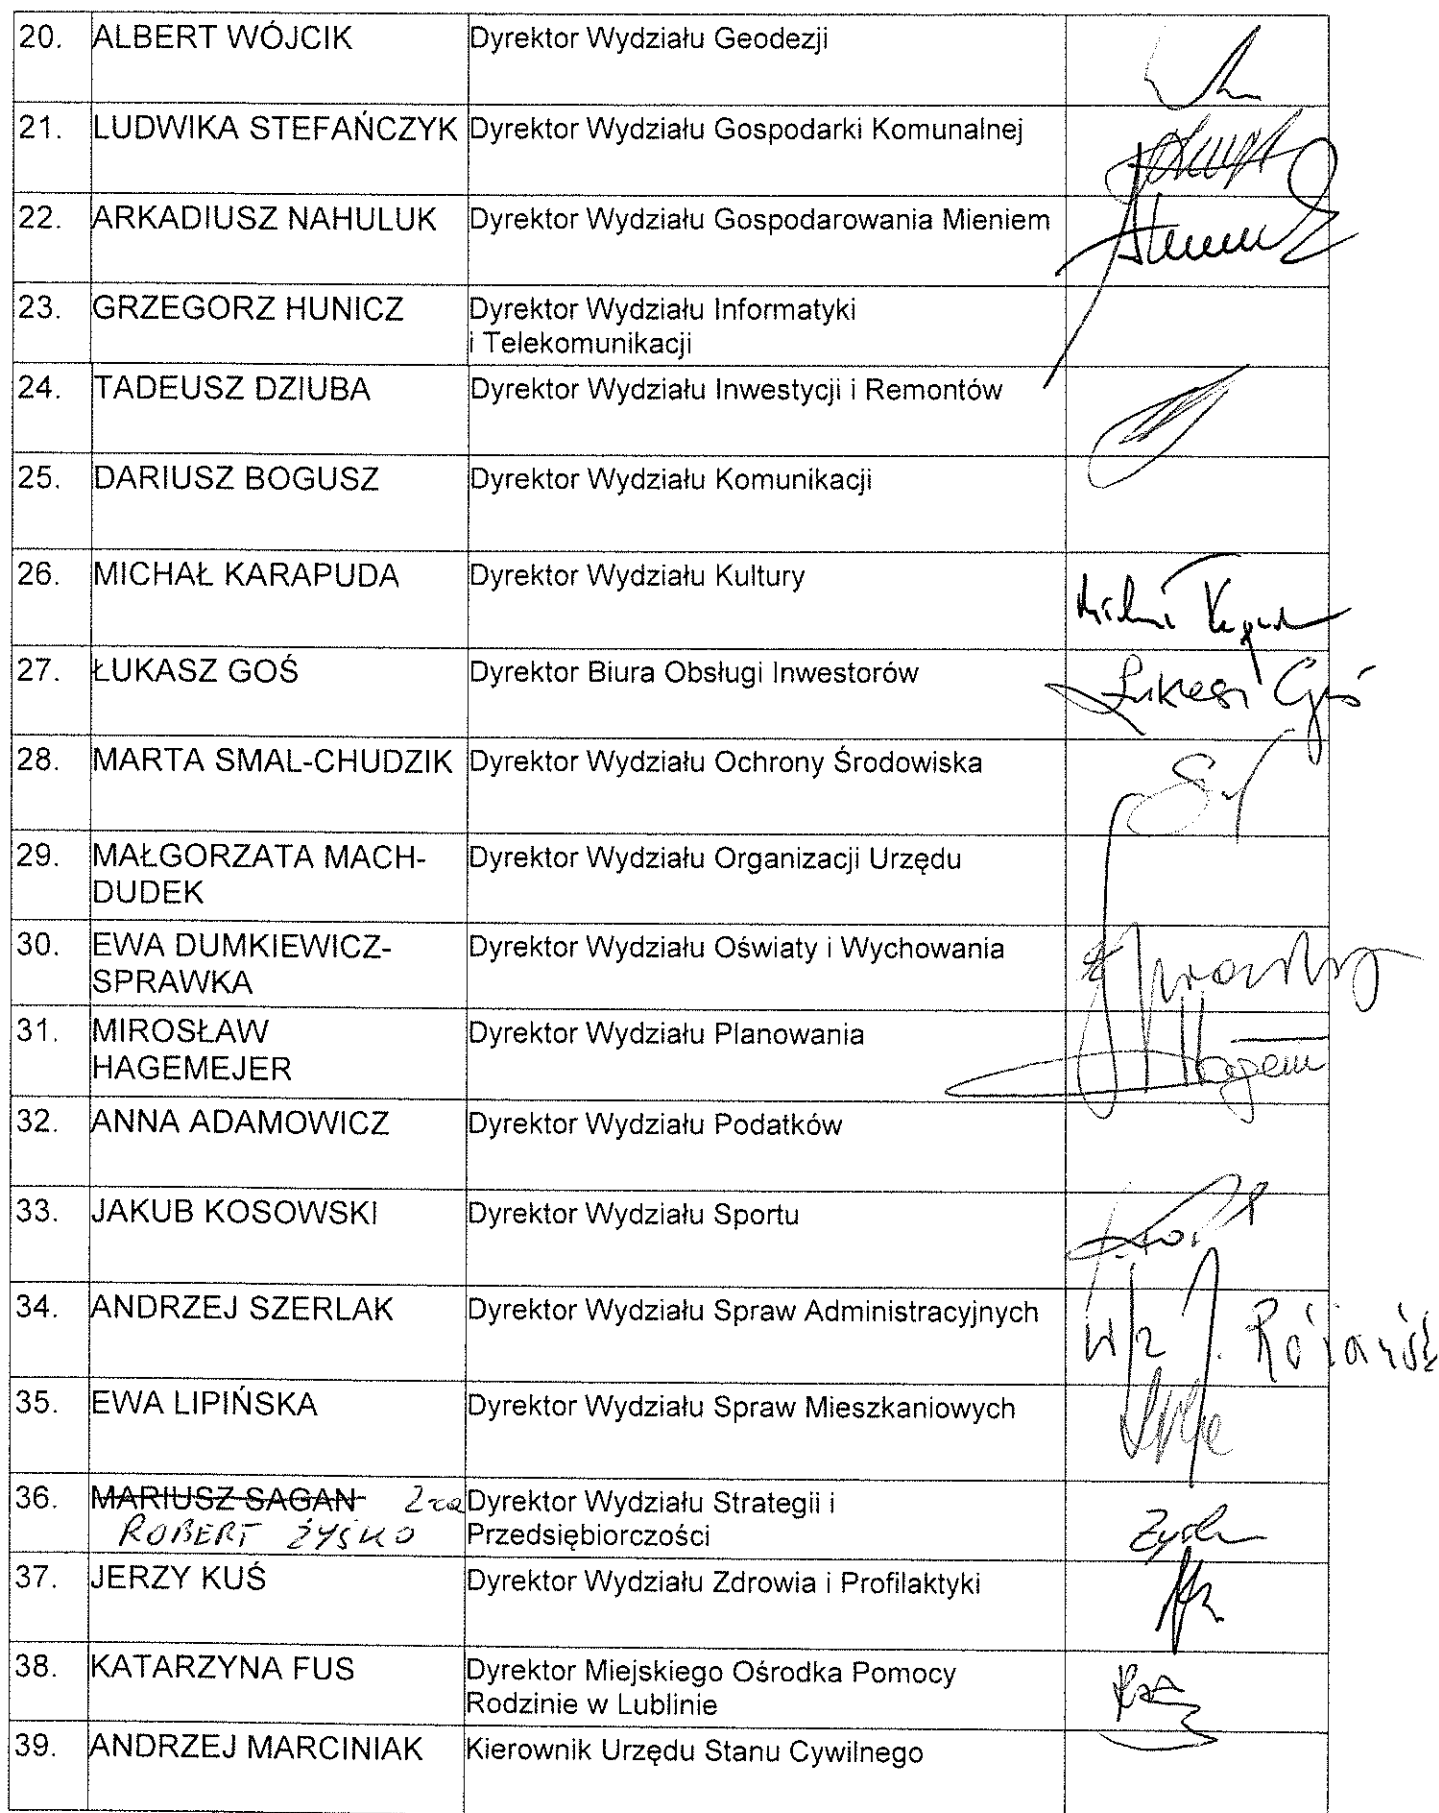 20. ALBERT WÓJCIK Dyrektor Wydziału Geodezji
21. LUDWIKA STEFAŃCZYK Dyrektor Wydziału Gospodarki Komunalnej
22. ARKADIUSZ NAHULUK Dyrektor Wydziału Gospodarowania Mieniem
23. GRZEGORZ HUNICZ Dyrektor Wydziału Informatyki
i Telekomunikacji
24. TADEUSZ DZIUBA Dyrektor Wydziału Inwestycji i Remontów
25. DARIUSZ BOGUSZ Dyrektor Wydziału Komunikacji
26. MICHAŁ KARAPUDA Dyrektor Wydziału Kultury
27. ŁUKASZ GOŚ Dyrektor Biura Obsługi Inwestorów Łukasz Goś
28. MARTA SMAL-CHUDZIK Dyrektor Wydziału Ochrony Środowiska
29. MAŁGORZATA MACH- Dyrektor Wydziału Organizacji Urzędu
DUDEK
30. EWA DUMKIEWICZ- Dyrektor Wydziału Oświaty i Wychowania
SPRAWKA
31. MIROSŁAW Dyrektor Wydziału Planowania
HAGEMEJER
32. ANNA ADAMOWICZ Dyrektor Wydziału Podatków
33. JAKUB KOSOWSKI Dyrektor Wydziału Sportu
34. ANDRZEJ SZERLAK Dyrektor Wydziału Spraw Administracyjnych w/z J.
35. EWA LIPIŃSKA Dyrektor Wydziału Spraw Mieszkaniowych
36. MARIUSZ SAGAN Z-ca Dyrektor Wydziału Strategii i
ROBERT ŻYŚKO Przedsiębiorczości
37. JERZY KUŚ Dyrektor Wydziału Zdrowia i Profilaktyki
38. KATARZYNA FUS Dyrektor Miejskiego Ośrodka Pomocy
Rodzinie w Lublinie
39. ANDRZEJ MARCINIAK Kierownik Urzędu Stanu Cywilnego